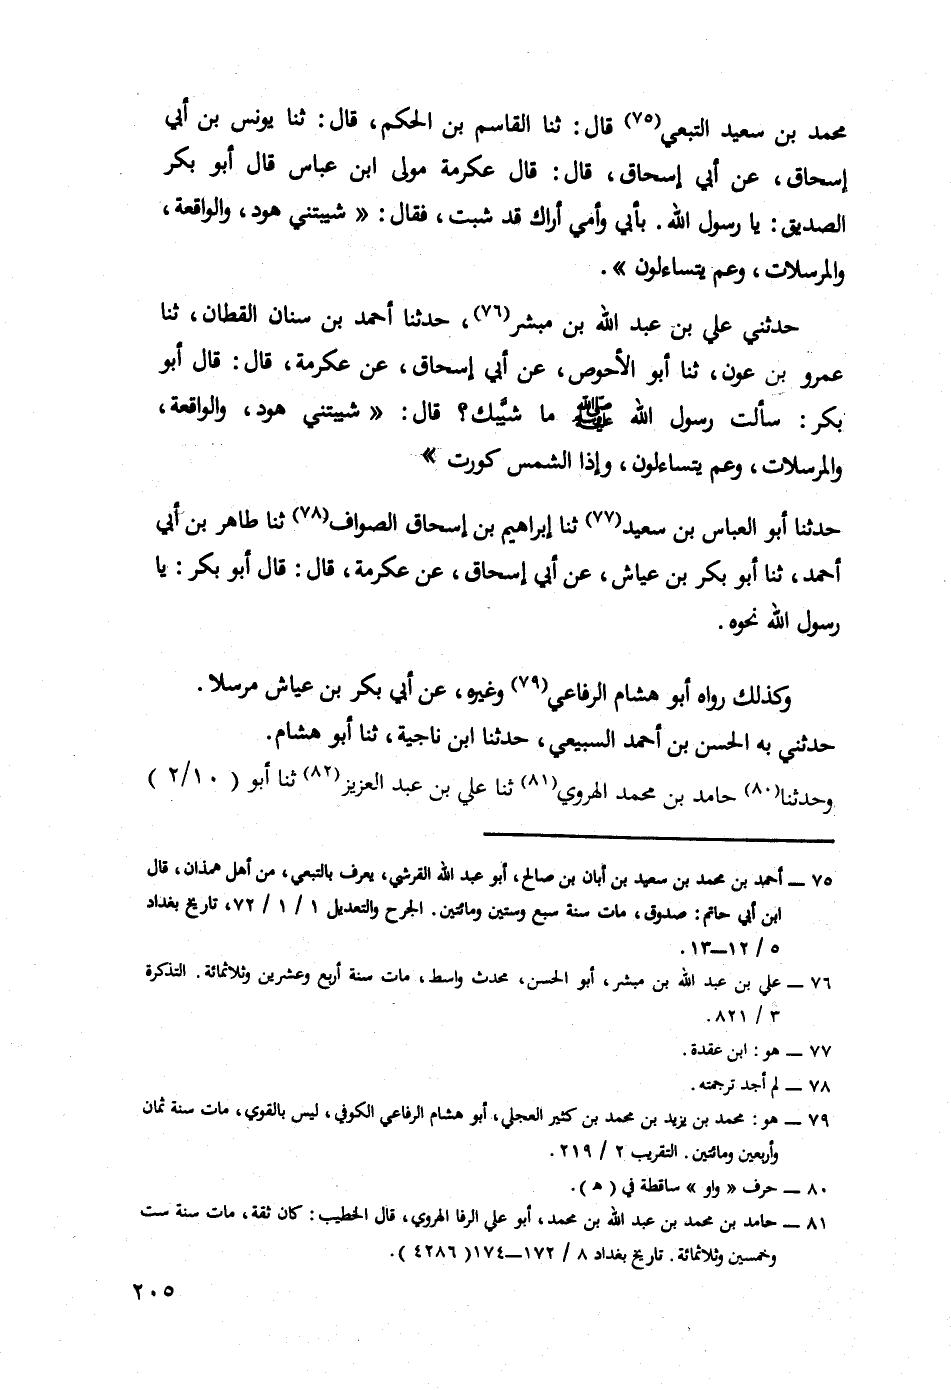 محمد بن سعيد التبعي(٧٥) قال: ثنا القاسم بن الحكم، قال: ثنا يونس بن أبي
إسحاق، عن أبي إسحاق، قال: قال عكرمة مولى ابن عباس قال أبو بكر
الصديق: يا رسول الله. بأبي وأمي أراك قد شبت، فقال: « شيبتني هود، والواقعة،
والمرسلات، وعم يتساءلون ».
حدثني علي بن عبد الله بن مبشر(٧٦)، حدثنا أحمد بن سنان القطان، ثنا
عمرو بن عون، ثنا أبو الأحوص، عن أبي إسحاق، عن عكرمة، قال: قال أبو
بكر: سألت رسول الله ﷺ ما شيَّبك؟ قال: « شيبتني هود، والواقعة،
والمرسلات، وعم يتساءلون، وإذا الشمس كورت »
حدثنا أبو العباس بن سعيد(٧٧) ثنا إبراهيم بن إسحاق الصواف(٧٨) ثنا طاهر بن أبي
أحمد، ثنا أبو بكر بن عياش، عن أبي إسحاق، عن عكرمة، قال: قال أبو بكر: يا
رسول الله نحوه.
وكذلك رواه أبو هشام الرفاعي(٧٩) وغيره، عن أبي بكر بن عياش مرسلا.
حدثني به الحسن بن أحمد السبيعي، حدثنا ابن ناجية، ثنا أبو هشام.
وحدثنا(٨٠) حامد بن محمد الهروي(٨١) ثنا علي بن عبد العزيز(٨٢) ثنا أبو ( ٢/١٠ )
٧٥ ــ أحمد بن محمد بن سعيد بن أبان بن صالح، أبو عبد الله القرشي، يعرف بالتبعي، من أهل همذان، قال
ابن أبي حاتم: صدوق، مات سنة سبع وستين ومائتين. الجرح والتعديل ١ / ١ / ٧٢، تاريخ بغداد
٥ / ١٢ــ١٣.
٧٦ ــ علي بن عبد الله بن مبشر، أبو الحسن، محدث واسط، مات سنة أربع وعشرين وثلاثمائة. التذكرة
٣ / ٨٢١.
٧٧ ــ هو: ابن عقدة.
٧٨ ــ لم أجد ترجمته.
٧٩ ــ هو: محمد بن يزيد بن محمد بن كثير العجلي، أبو هشام الرفاعي الكوفي، ليس بالقوي، مات سنة ثمان
وأربعين ومائتين. التقريب ٢ / ٢١٩.
٨٠ ــ حرف « واو » ساقطة في ( هـ ).
٨١ ــ حامد بن محمد بن عبد الله بن محمد، أبو علي الرفا الهروي، قال الخطيب: كان ثقة، مات سنة ست
وخمسين وثلاثمائة. تاريخ بغداد ٨ / ١٧٢ــ١٧٤( ٤٢٨٦ ).
٢٠٥